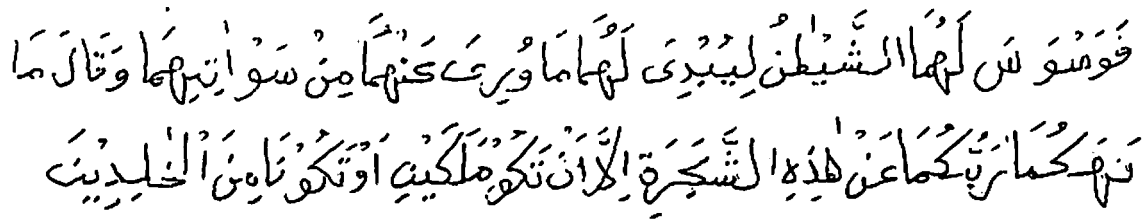 فَوَسْوَسَ لَهُمَا الشَّيْطٰنُ لِيُبْدِىَ لَهُمَا مَا وُرِىَ عَنْهُمَا مِنْ سَوْاٰتِهِمَا وَقَالَ مَا
نَهَىكُمَا رَبُّكُمَا عَنْ هٰذِهِ الشَّجَرَةِ اِلَّا اَنْ تَكُوْ مَلَكَيْنِ اَوْ تَكُوْنَا مِنَ الْخٰلِدِيْنَ